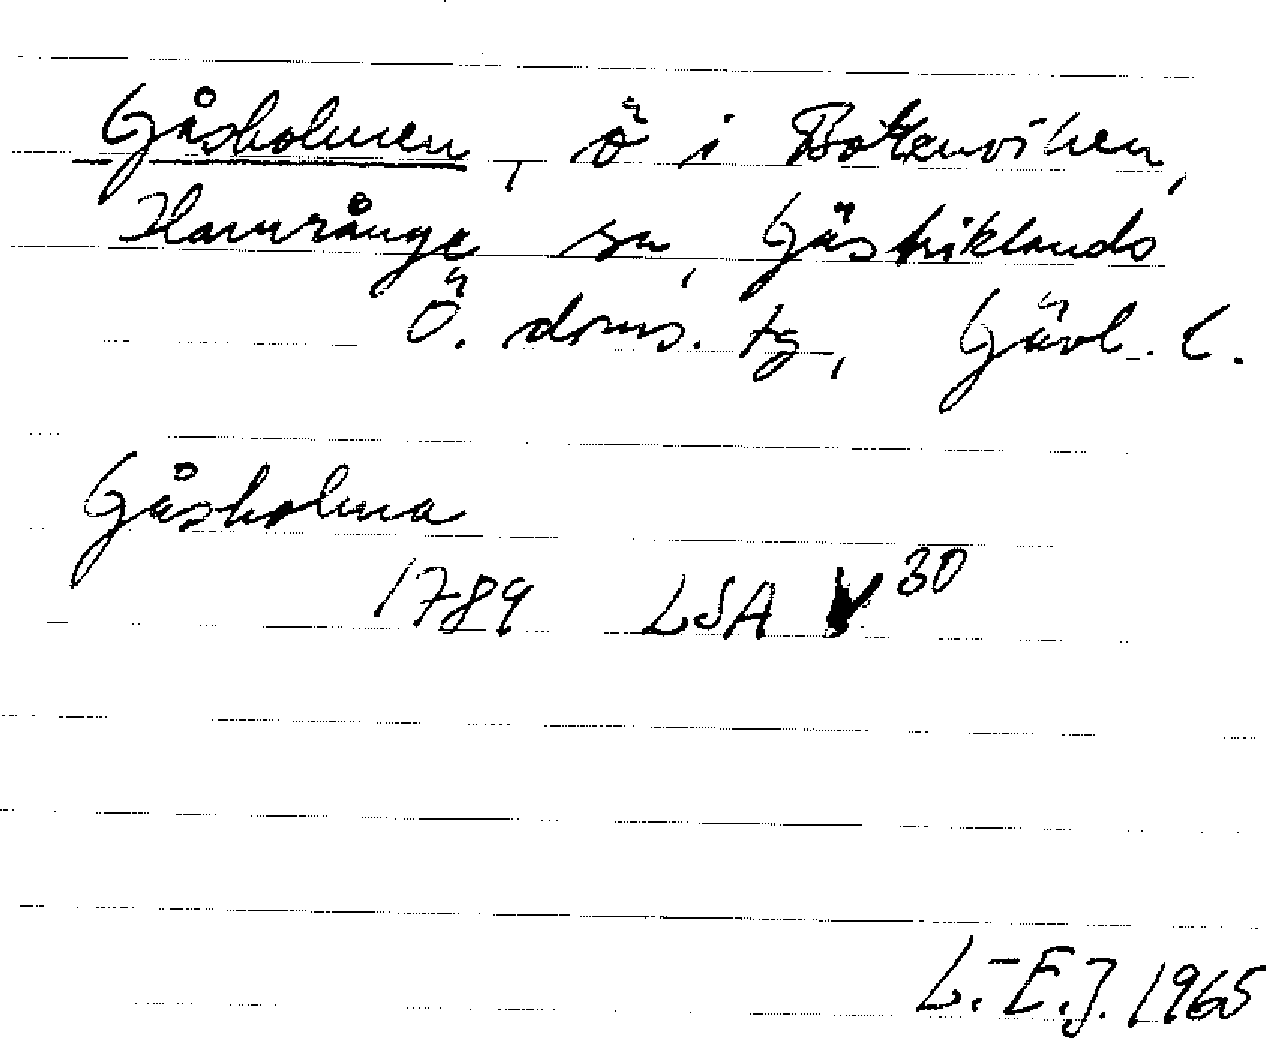 Gåsholmen, ö i Bottenviken,
Hamrånge sn, Gästriklands
Ö. doms. tg, Gävl. l.
Gåsholma
1789 LSA V 30
L.-E.J. 1965